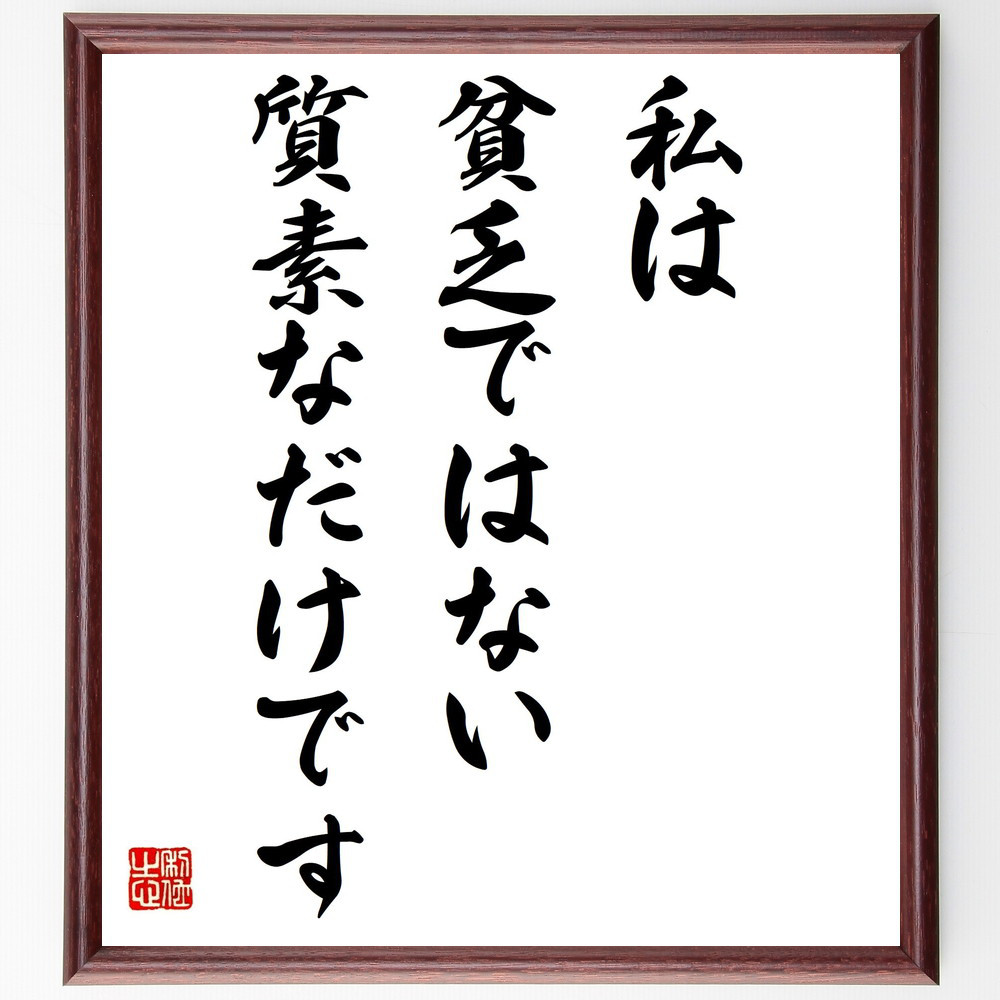 私は
貧乏ではない
質素なだけです